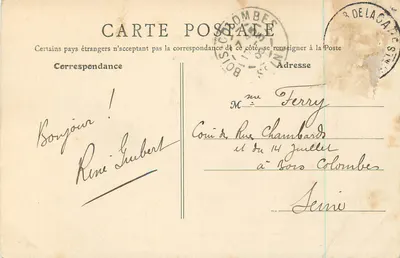 CARTE POSTALE
Certains pays étrangers n'acceptant pas la correspondance de ce côté, se renseigner à la Poste
Correspondance
Adresse
BOIS COLOMBES
DE LA GARE ST
Bonjour !
René Guibert
Mme Ferry
Coin de Rue Chambards
et du 14 Juillet
à Bois Colombes
Seine